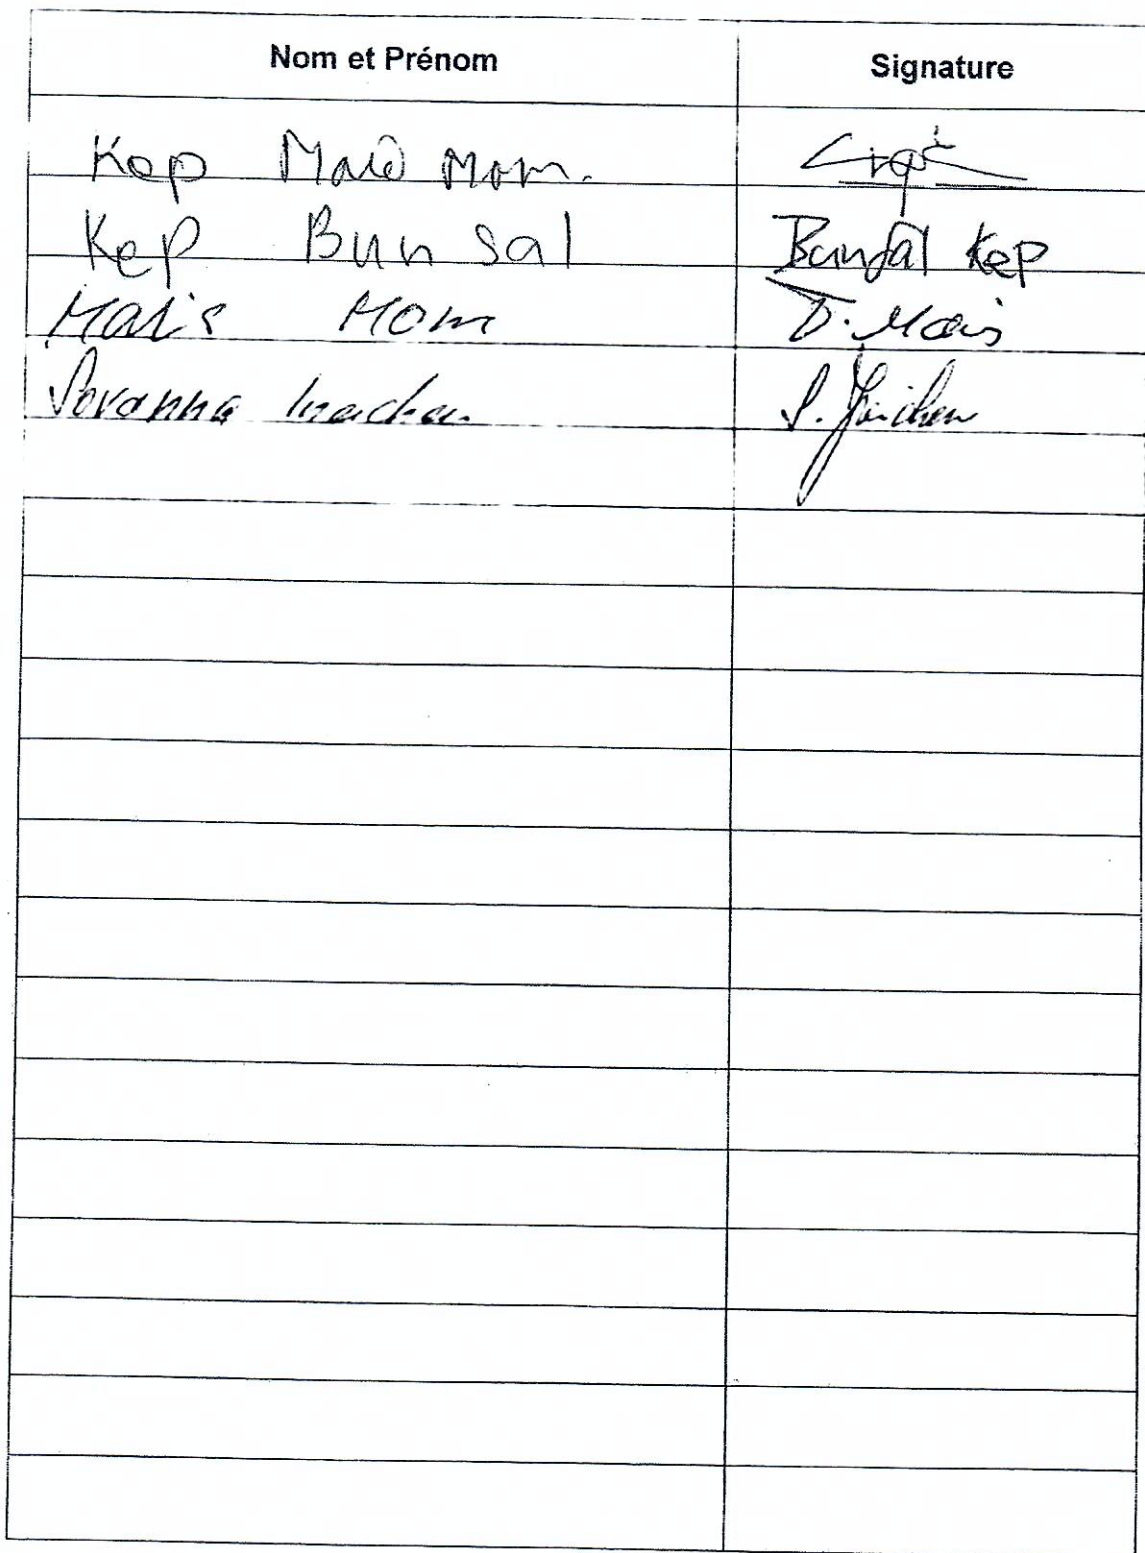 Nom et Prénom Signature
Kep Mom.
Kep Bun Sal Bunsal Kep
Malis Mom D. Malis
Sovanna